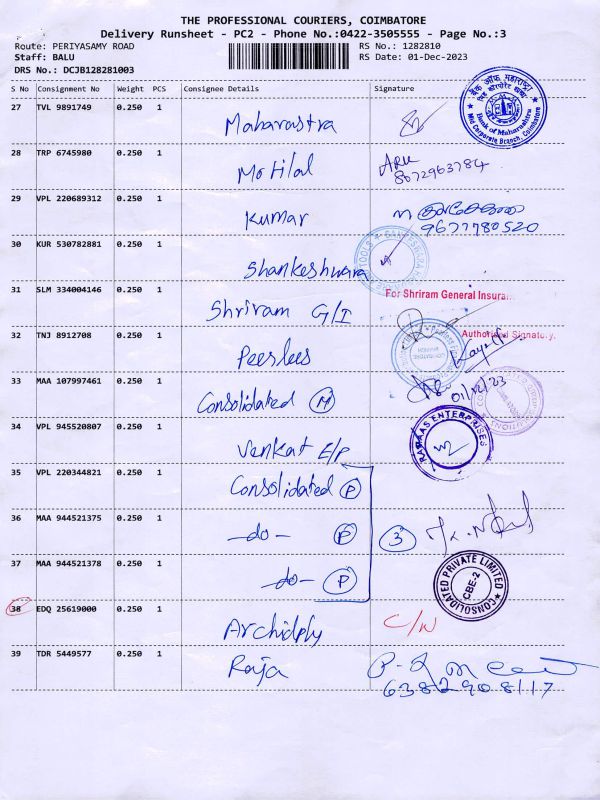 THE PROFESSIONAL COURIERS, COIMBATORE
Delivery Runsheet - PC2 - Phone No.:0422-3505555 - Page No.:3
Route: PERIYASAMY ROAD RS No.: 1282810
Staff: BALU RS Date: 01-Dec-2023
DRS No.: DCJB128281003
S No Consignment No Weight PCS Consignee Details Signature
27 TVL 9891749 0.250 1 Maharastra
Bank of Maharashtra
Mid Corporate Branch, Coimbatore
28 TRP 6745980 0.250 1 Motilal ARU
8072963784
29 VPL 220689312 0.250 1 Kumar
9677780520
30 KUR 530782881 0.250 1 Shankeshwara
31 SLM 334004146 0.250 1 Shriram G/I
For Shriram General Insuran
Authorised Signatory.
32 TNJ 8912708 0.250 1 Peerlees
33 MAA 107997461 0.250 1 Consolidated M
01/12/23
34 VPL 945520807 0.250 1 Venkat E/P
ENTERPRISES
35 VPL 220344821 0.250 1 Consolidated P
36 MAA 944521375 0.250 1 -do- P 3
37 MAA 944521378 0.250 1 -do- P
CONSOLIDATED PRIVATE LIMITED
CBE-2
38 EDQ 25619000 0.250 1 Archidply C/N
39 TDR 5449577 0.250 1 Raja
6382908117